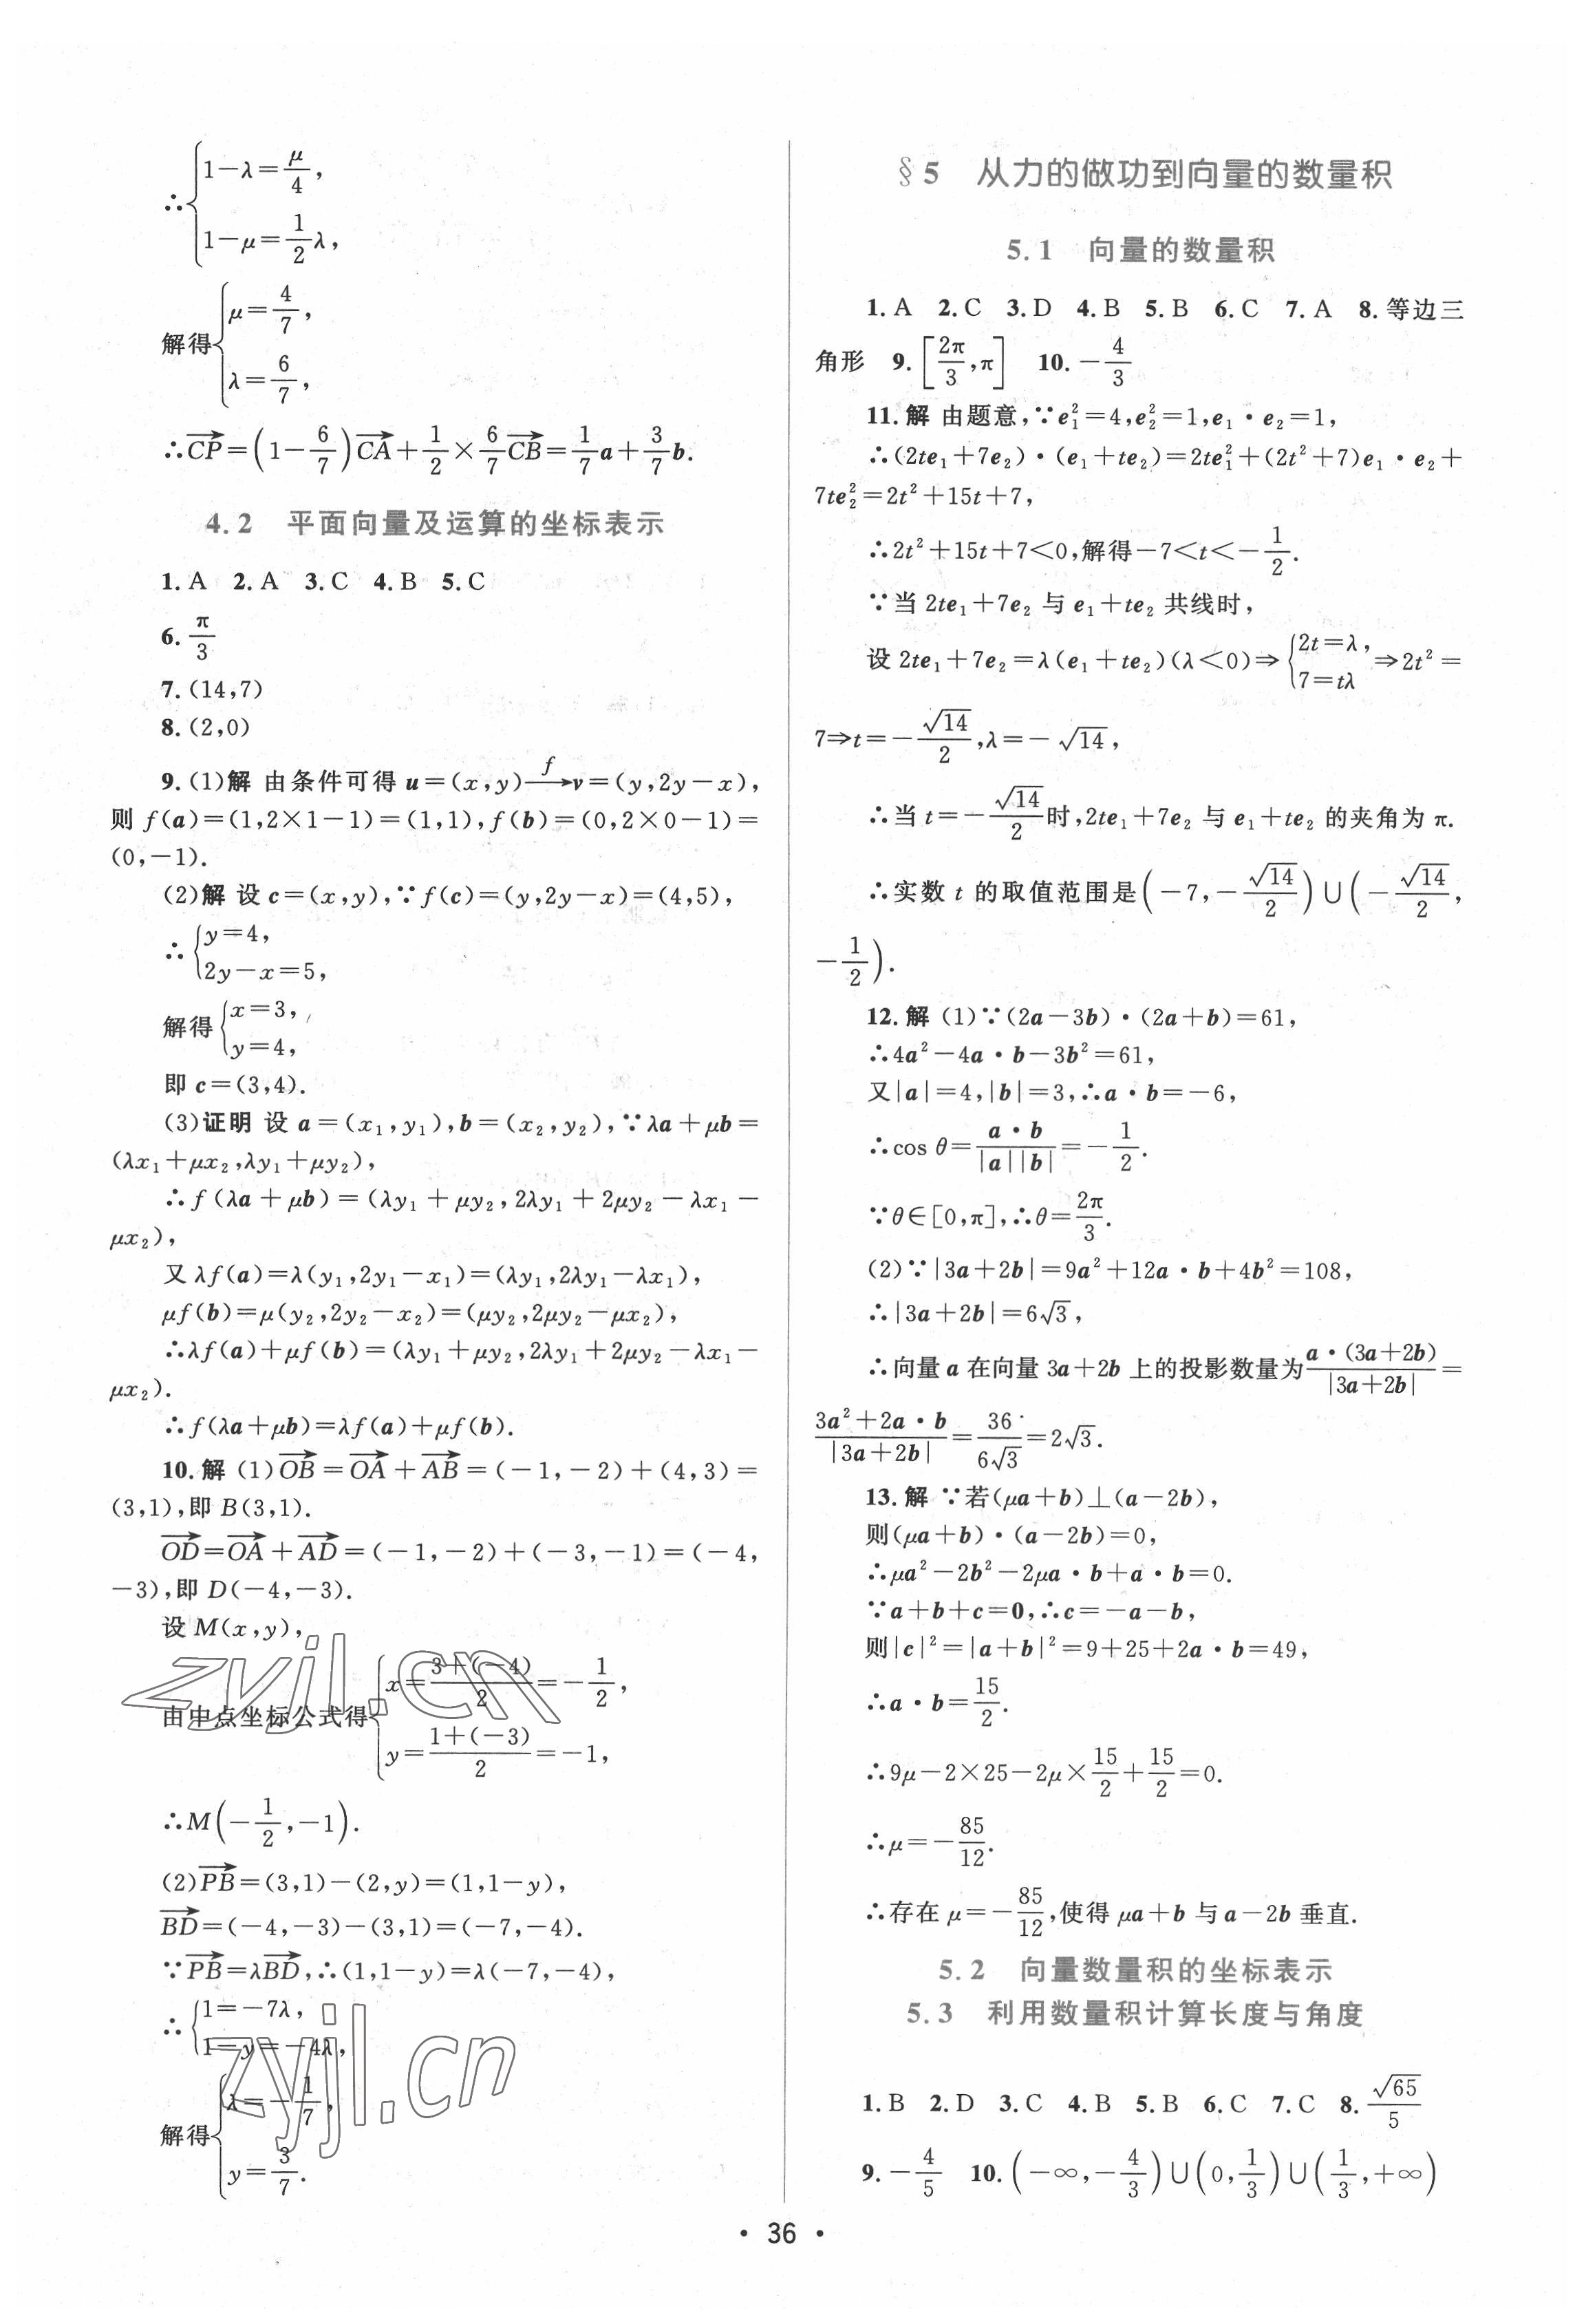 ∴{1−λ=μ/4,
1−μ=1/2 λ,
解得{μ=4/7,
λ=6/7,
∴CP→=(1−6/7)CA→+1/2×6/7CB→=1/7a+3/7b.
4.2 平面向量及运算的坐标表示
1.A 2.A 3.C 4.B 5.C
6.π/3
7.(14,7)
8.(2,0)
9.(1)解 由条件可得 u=(x,y)—f→v=(y,2y−x),
则 f(a)=(1,2×1−1)=(1,1),f(b)=(0,2×0−1)=
(0,−1).
(2)解 设 c=(x,y),∵f(c)=(y,2y−x)=(4,5),
∴{y=4,
2y−x=5,
解得{x=3,
y=4,
即 c=(3,4).
(3)证明 设 a=(x₁,y₁),b=(x₂,y₂),∵λa+μb=
(λx₁+μx₂,λy₁+μy₂),
∴f(λa+μb)=(λy₁+μy₂,2λy₁+2μy₂−λx₁−
μx₂),
又 λf(a)=λ(y₁,2y₁−x₁)=(λy₁,2λy₁−λx₁),
μf(b)=μ(y₂,2y₂−x₂)=(μy₂,2μy₂−μx₂),
∴λf(a)+μf(b)=(λy₁+μy₂,2λy₁+2μy₂−λx₁−
μx₂).
∴f(λa+μb)=λf(a)+μf(b).
10.解 (1)OB→=OA→+AB→=(−1,−2)+(4,3)=
(3,1),即 B(3,1).
OD→=OA→+AD→=(−1,−2)+(−3,−1)=(−4,
−3),即 D(−4,−3).
设 M(x,y),
由中点坐标公式得{x=(3+(−4))/2=−1/2,
y=(1+(−3))/2=−1,
∴M(−1/2,−1).
(2)PB→=(3,1)−(2,y)=(1,1−y),
BD→=(−4,−3)−(3,1)=(−7,−4).
∵PB→=λBD→,∴(1,1−y)=λ(−7,−4),
∴{1=−7λ,
1−y=−4λ,
解得{λ=−1/7,
y=3/7.
zyjl.cn
zyjl.cn
§5 从力的做功到向量的数量积
5.1 向量的数量积
1.A 2.C 3.D 4.B 5.B 6.C 7.A 8.等边三
角形 9.[2π/3,π] 10.−4/3
11.解 由题意,∵e₁²=4,e₂²=1,e₁·e₂=1,
∴(2te₁+7e₂)·(e₁+te₂)=2te₁²+(2t²+7)e₁·e₂+
7te₂²=2t²+15t+7,
∴2t²+15t+7<0,解得−7<t<−1/2.
∵当 2te₁+7e₂ 与 e₁+te₂ 共线时,
设 2te₁+7e₂=λ(e₁+te₂)(λ<0)⇒{2t=λ, 7=tλ ⇒2t²=
7⇒t=−√14/2,λ=−√14,
∴当 t=−√14/2时,2te₁+7e₂ 与 e₁+te₂ 的夹角为 π.
∴实数 t 的取值范围是(−7,−√14/2)∪(−√14/2,
−1/2).
12.解 (1)∵(2a−3b)·(2a+b)=61,
∴4a²−4a·b−3b²=61,
又|a|=4,|b|=3,∴a·b=−6,
∴cos θ=a·b/|a||b|=−1/2.
∵θ∈[0,π],∴θ=2π/3.
(2)∵|3a+2b|=9a²+12a·b+4b²=108,
∴|3a+2b|=6√3,
∴向量 a 在向量 3a+2b 上的投影数量为a·(3a+2b)/|3a+2b|=
(3a²+2a·b)/|3a+2b|=36/6√3=2√3.
13.解 ∵若(μa+b)⊥(a−2b),
则(μa+b)·(a−2b)=0,
∴μa²−2b²−2μa·b+a·b=0.
∵a+b+c=0,∴c=−a−b,
则|c|²=|a+b|²=9+25+2a·b=49,
∴a·b=15/2.
∴9μ−2×25−2μ×15/2+15/2=0.
∴μ=−85/12.
∴存在 μ=−85/12,使得 μa+b 与 a−2b 垂直.
5.2 向量数量积的坐标表示
5.3 利用数量积计算长度与角度
1.B 2.D 3.C 4.B 5.B 6.C 7.C 8.√65/5
9.−4/5 10.(−∞,−4/3)∪(0,1/3)∪(1/3,+∞)
· 36 ·